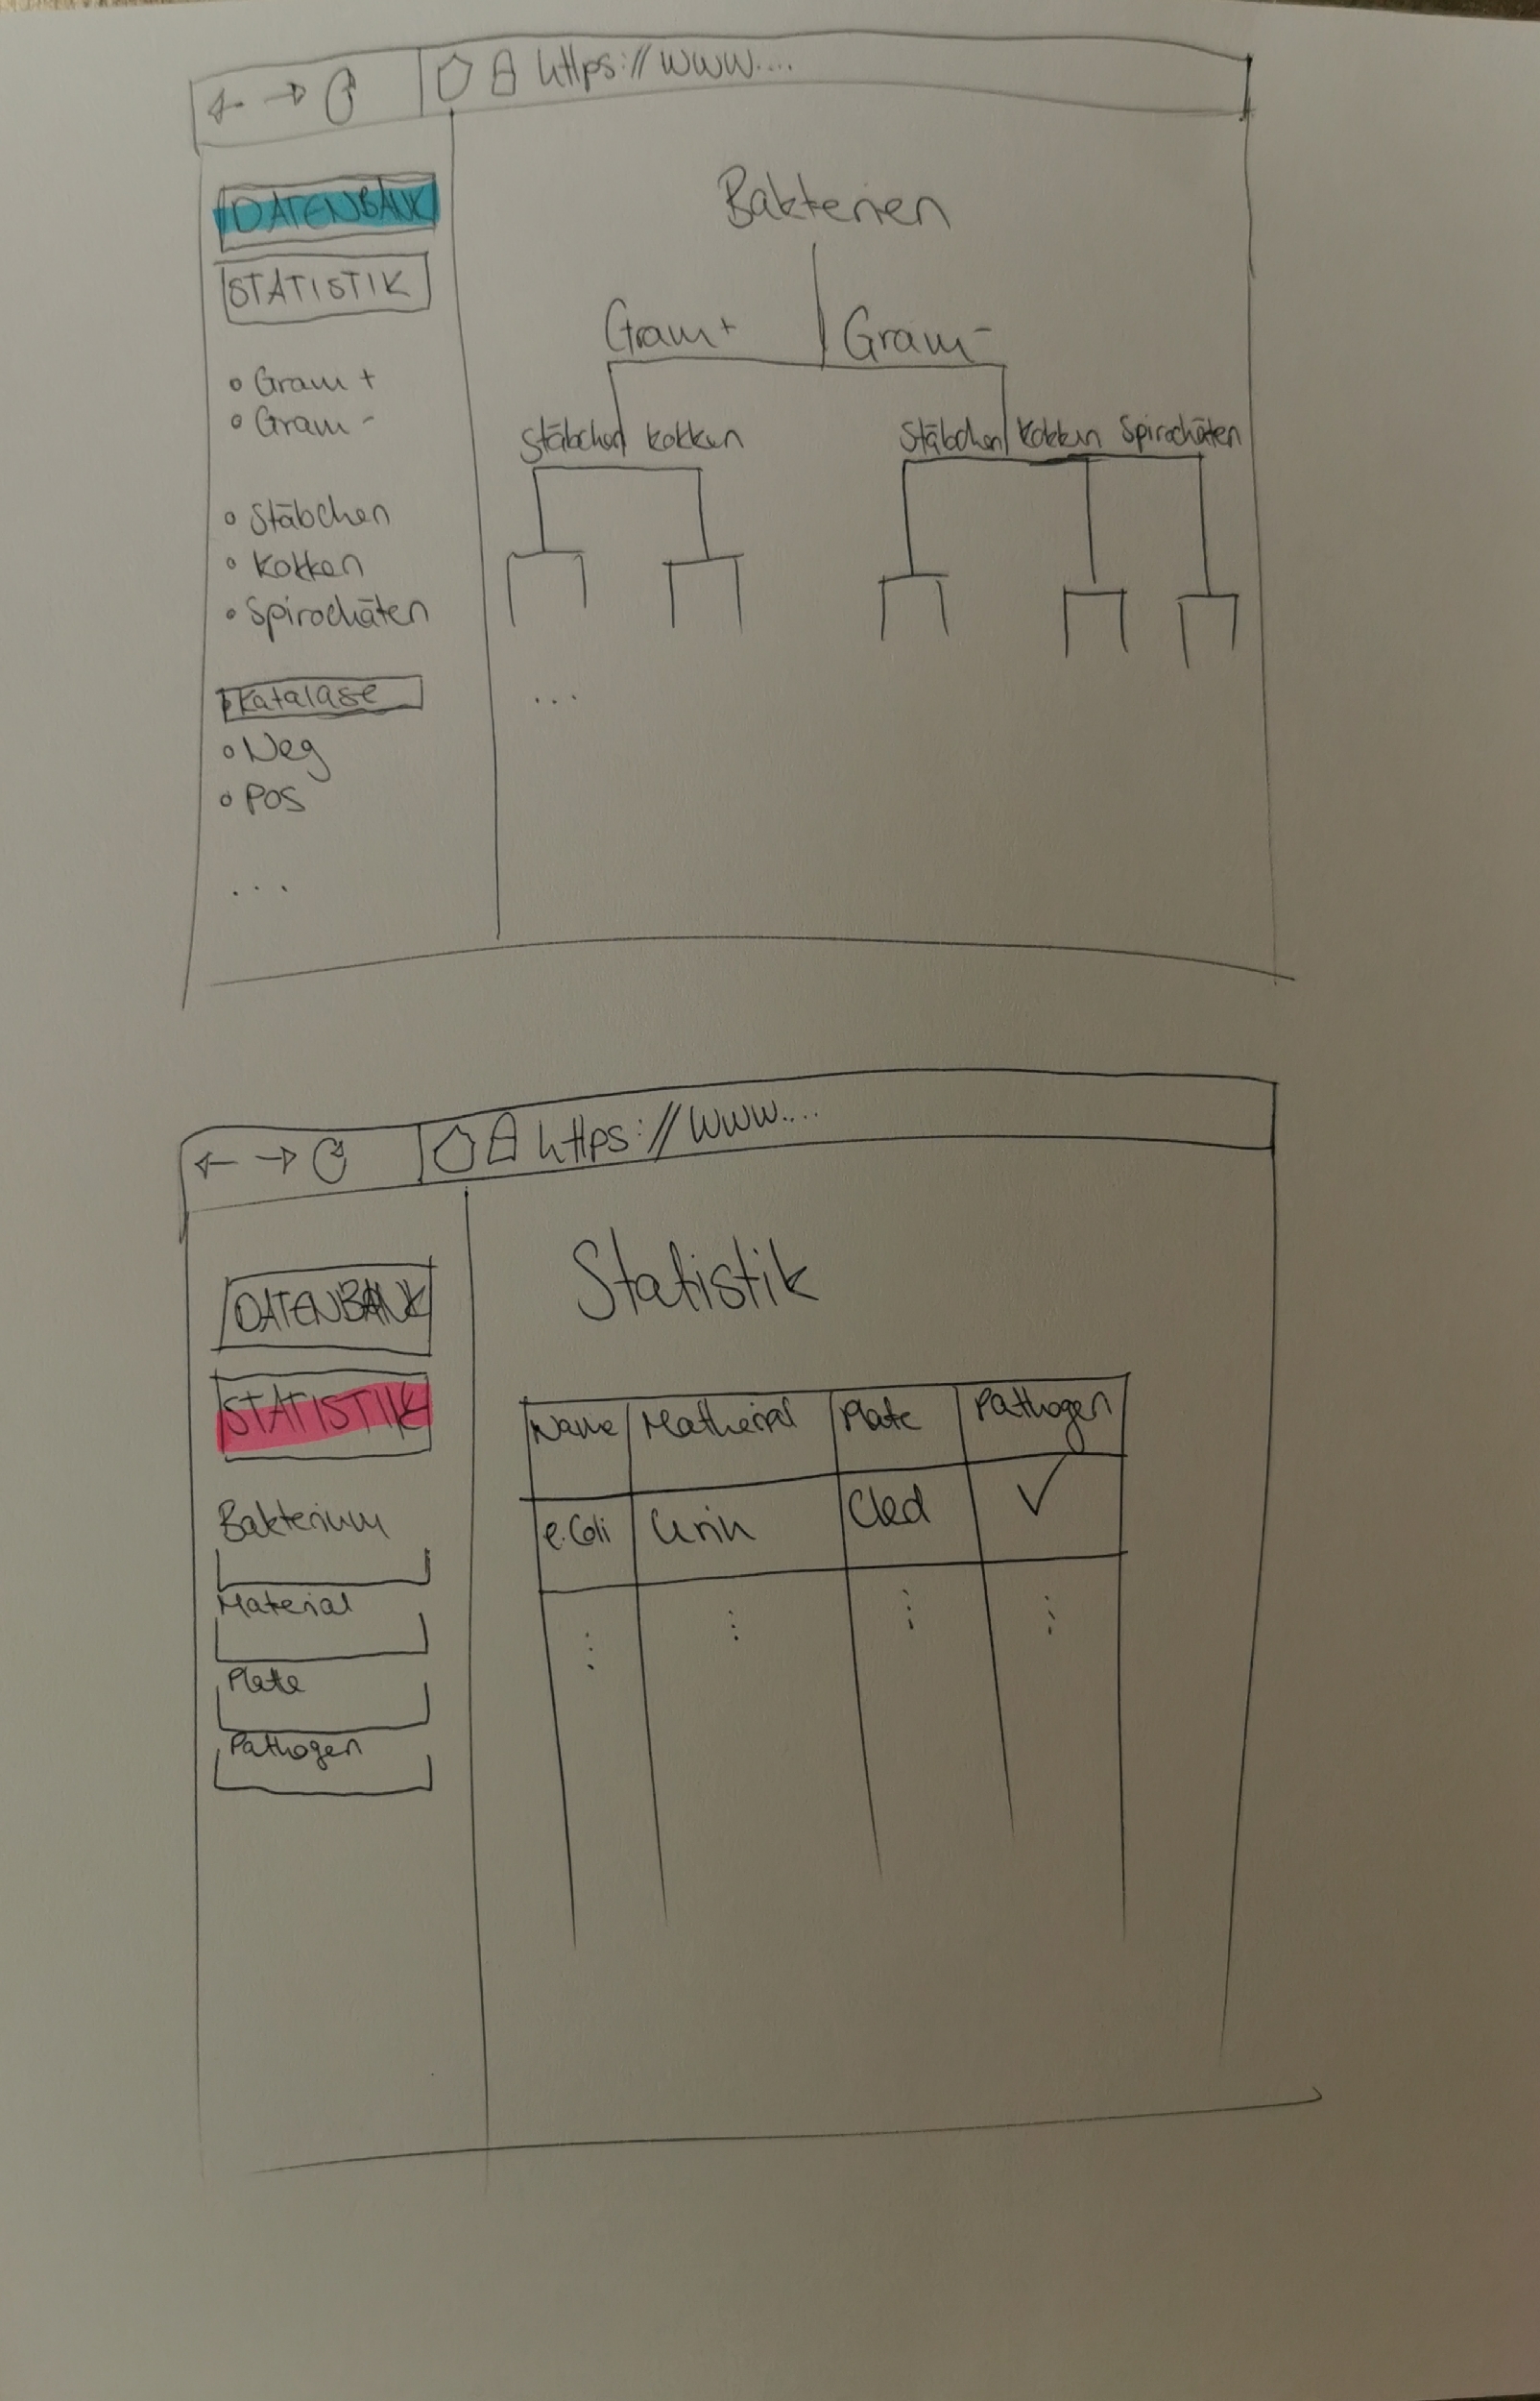 https://www....
DATENBANK
STATISTIK
Gram +
Gram -
Stäbchen
Kokken
Spirochäten
Katalase
Neg
Pos
...
Bakterien
Gram+ Gram-
Stäbchen Kokken Stäbchen Kokken Spirochäten
...
https://www....
DATENBANK
STATISTIK
Bakterium
Material
Plate
Pathogen
Statistik
Name Matherial Plate Pathogen
e.Coli Urin Cled ✓
⋮ ⋮ ⋮ ⋮